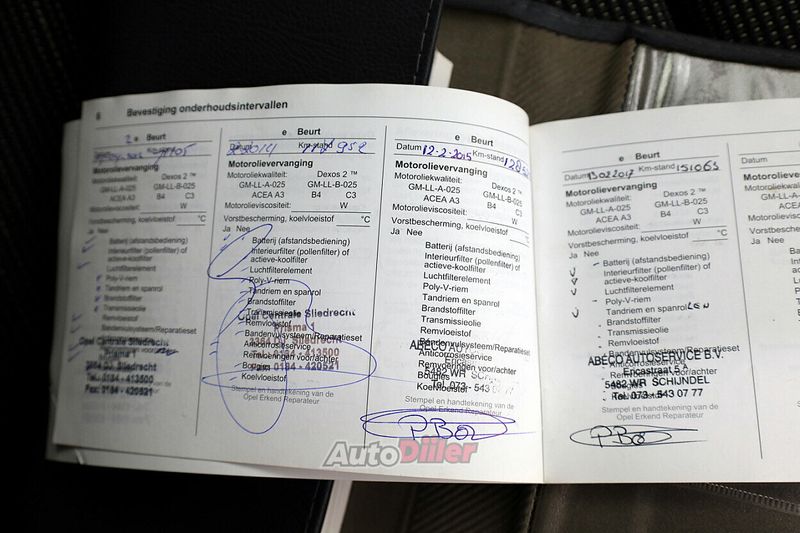 6 Bevestiging onderhoudsintervallen
2 e Beurt
Motorolievervanging
Motoroliekwaliteit: Dexos 2 ™
GM-LL-A-025 GM-LL-B-025
ACEA A3 B4 C3
Motorolieviscositeit: W
Vorstbescherming, koelvloeistof °C
Ja Nee
Batterij (afstandsbediening)
Interieurfilter (pollenfilter) of
actieve-koolfilter
Luchtfilterelement
Poly-V-riem
Tandriem en spanrol
Brandstoffilter
Transmissieolie
Remvloeistof
Bandenvulsysteem/Reparatieset
Opel Centrale Sliedrecht
Prisma 1
3364 DJ Sliedrecht
Tel. 0184 - 413500
Fax: 0184 - 420521
e Beurt
Datum 2014 Km-stand 958
Motorolievervanging
Motoroliekwaliteit: Dexos 2 ™
GM-LL-A-025 GM-LL-B-025
ACEA A3 B4 C3
Motorolieviscositeit: W
Vorstbescherming, koelvloeistof °C
Ja Nee
Batterij (afstandsbediening)
Interieurfilter (pollenfilter) of
actieve-koolfilter
Luchtfilterelement
Poly-V-riem
Tandriem en spanrol
Brandstoffilter
Transmissieolie
Opel Centrale Sliedrecht
Remvloeistof
Prisma 1
Bandenvulsysteem/Reparatieset
3364 DJ Sliedrecht
Anticorrosieservice
Tel. 0184 - 413500
Remvoeringen voor/achter
0184 - 420521
Bougies
Koelvloeistof
Stempel en handtekening van de
Opel Erkend Reparateur
e Beurt
Datum 12-2-2015 Km-stand
Motorolievervanging
Motoroliekwaliteit: Dexos 2 ™
GM-LL-A-025 GM-LL-B-025
ACEA A3 B4 C3
Motorolieviscositeit: W
Vorstbescherming, koelvloeistof °C
Ja Nee
Batterij (afstandsbediening)
Interieurfilter (pollenfilter) of
actieve-koolfilter
Luchtfilterelement
Poly-V-riem
Tandriem en spanrol
Brandstoffilter
Transmissieolie
Remvloeistof
Bandenvulsysteem/Reparatieset
ABECO
Anticorrosieservice
Remvoeringen voor/achter
5482 WR
Bougies
Tel. 073 - 543
Koelvloeistof
Stempel en handtekening van de
Opel Erkend Reparateur
e Beurt
Datum 13022017 Km-stand 151063
Motorolievervanging
Motoroliekwaliteit: Dexos 2 ™
GM-LL-A-025 GM-LL-B-025
ACEA A3 B4 C3
Motorolieviscositeit: W
Vorstbescherming, koelvloeistof °C
Ja Nee
Batterij (afstandsbediening)
Interieurfilter (pollenfilter) of
actieve-koolfilter
Luchtfilterelement
Poly-V-riem
Tandriem en spanrol
Brandstoffilter
Transmissieolie
Remvloeistof
Bandenvulsysteem/Reparatieset
ABECO AUTOSERVICE B.V.
Ericastraat 5 A
Remvoeringen voor/achter
5482 WR SCHIJNDEL
Tel. 073 - 543 07 77
Koelvloeistof
Stempel en handtekening van de
Opel Erkend Reparateur
Datum
Motorolievervanging
Motoroliekwaliteit:
GM-LL-A-025
ACEA A3
Motorolieviscositeit:
Vorstbescherming,
Ja Nee
AutoDiller